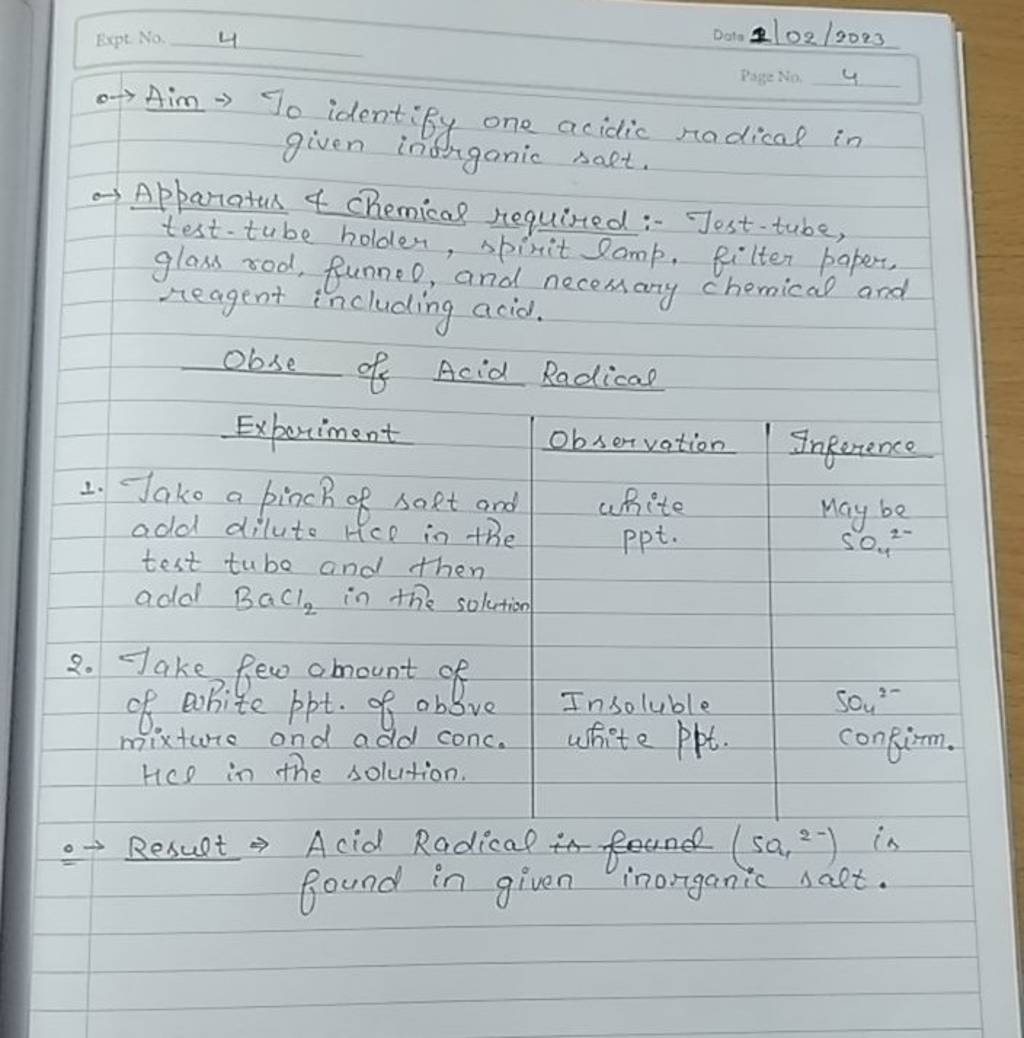 Expt. No. 4
Date 2/02/2023
Page No. 4
Aim → To identify one acidic radical in
given inorganic salt.
Apparatus & Chemical required :- Test-tube,
test-tube holder, spirit lamp, filter paper,
glass rod, funnel, and necessary chemical and
reagent including acid.
Obse of Acid Radical
Experiment Observation Inference
1. Take a pinch of salt and white May be
add dilute HCl in the ppt. SO₄²⁻
test tube and then
add BaCl₂ in the solution
2. Take few amount of
of white ppt. of above Insoluble SO₄²⁻
mixture and add conc. white ppt. confirm.
HCl in the solution.
Result ⇒ Acid Radical is found (SO₄²⁻) is
found in given inorganic salt.